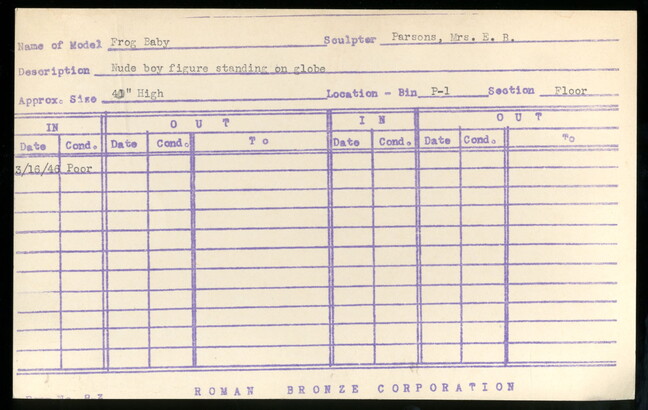 Name of Model Frog Baby Sculptor Parsons, Mrs. E. B.
Description Nude boy figure standing on globe
Approx. Size " High Location - Bin P-1 Section Floor
IN OUT IN OUT
Date Cond. Date Cond. To Date Cond. Date Cond. To
3/16/46 Poor
ROMAN BRONZE CORPORATION